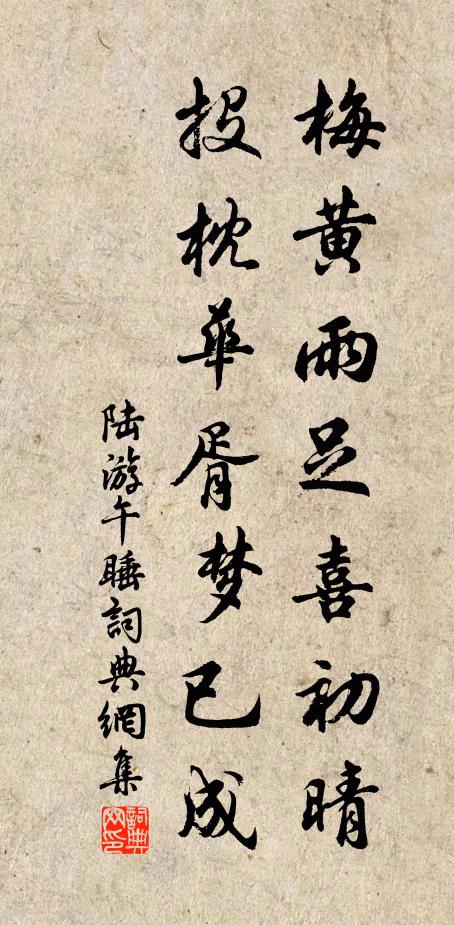 梅黄雨足喜初晴
投枕华胥梦已成
陆游午睡詞典網集
詞典網印